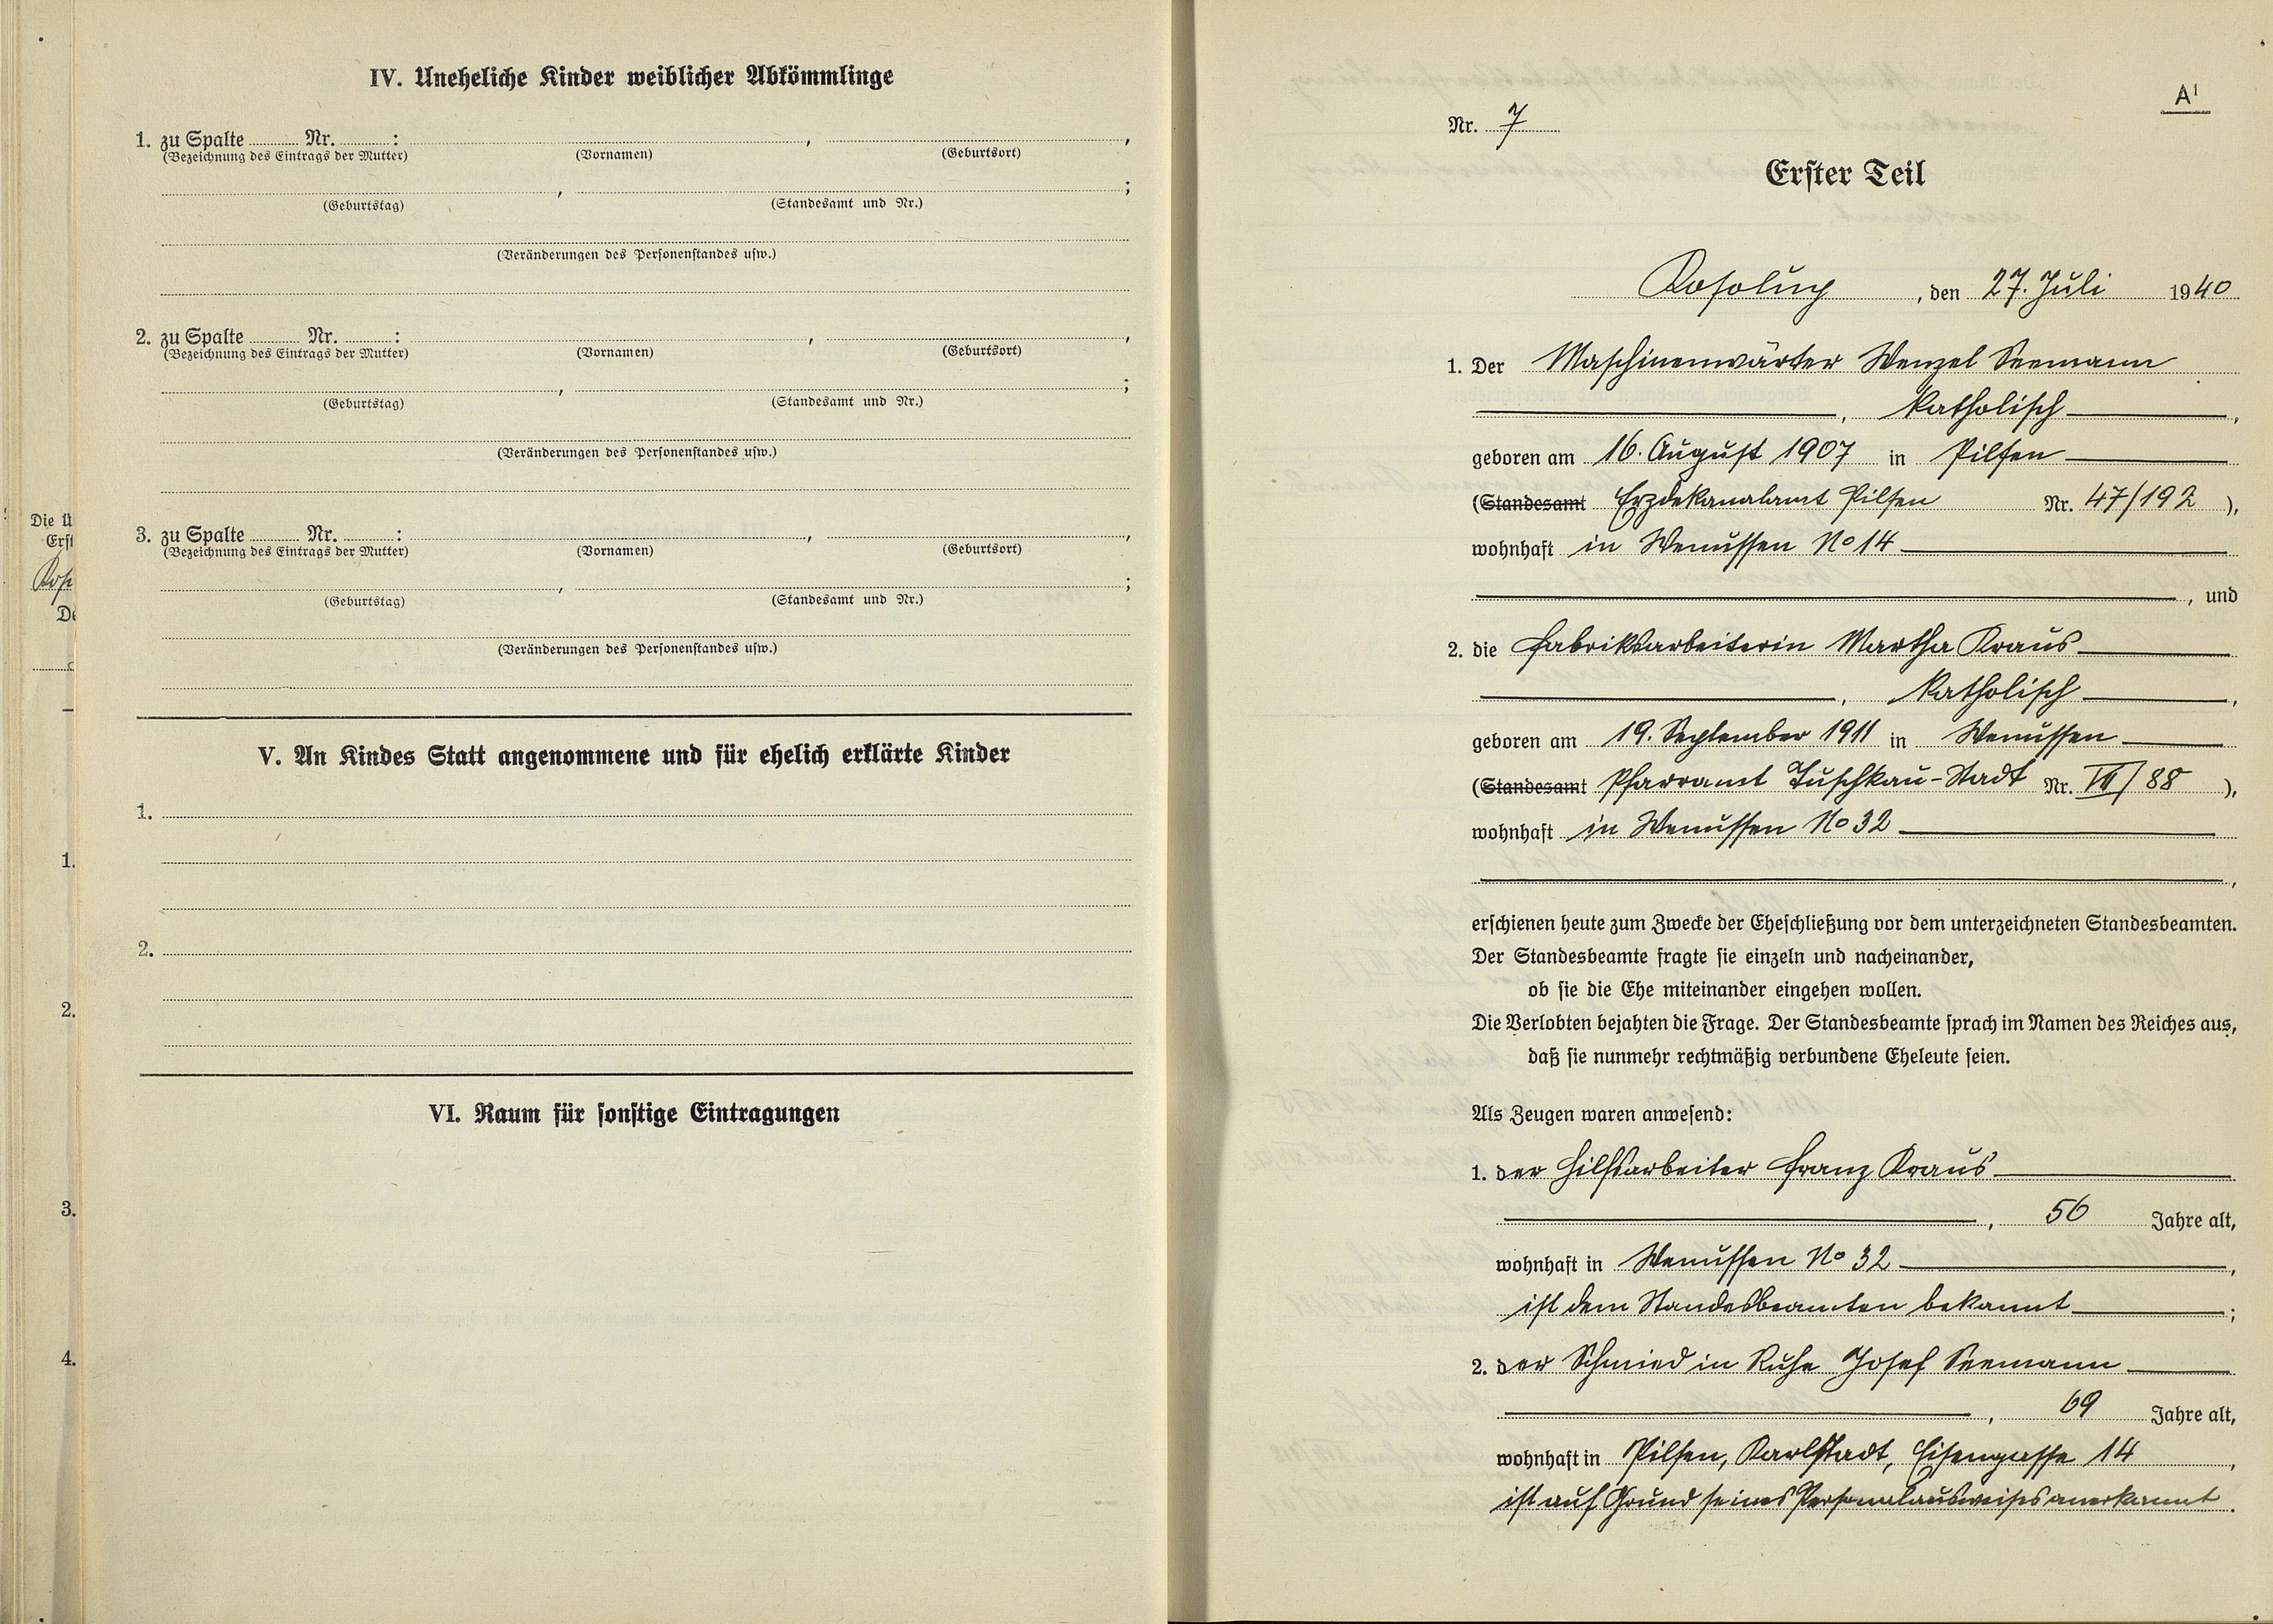 IV. Uneheliche Kinder weiblicher Abkömmlinge
1. zu Spalte ........ Nr. ........:
(Bezeichnung des Eintrags der Mutter) (Vornamen) (Geburtsort)
(Geburtstag) (Standesamt und Nr.)
(Veränderungen des Personenstandes usw.)
2. zu Spalte ........ Nr. ........:
(Bezeichnung des Eintrags der Mutter) (Vornamen) (Geburtsort)
(Geburtstag) (Standesamt und Nr.)
(Veränderungen des Personenstandes usw.)
Die Ü
Erst
3. zu Spalte ........ Nr. ........:
(Bezeichnung des Eintrags der Mutter) (Vornamen) (Geburtsort)
(Geburtstag) (Standesamt und Nr.)
(Veränderungen des Personenstandes usw.)
V. An Kindes Statt angenommene und für ehelich erklärte Kinder
1.
1.
2.
2.
VI. Raum für sonstige Eintragungen
3.
4.
A1
Nr. 7
Erster Teil
Kosolup, den 27. Juli 1940
1. Der Maschinenwärter Wenzel Seemann
, katholisch,
geboren am 16. August 1907 in Pilsen
(Standesamt Erzdekanalamt Pilsen Nr. 47/192),
wohnhaft in Wenussen No 14
, und
2. die Fabriksarbeiterin Martha Kraus
, katholisch,
geboren am 19. September 1911 in Wenussen
(Standesamt Pfarramt Tuschkau-Stadt Nr. / 88),
wohnhaft in Wenussen No 32
,
erschienen heute zum Zwecke der Eheschließung vor dem unterzeichneten Standesbeamten.
Der Standesbeamte fragte sie einzeln und nacheinander,
ob sie die Ehe miteinander eingehen wollen.
Die Verlobten bejahten die Frage. Der Standesbeamte sprach im Namen des Reiches aus,
daß sie nunmehr rechtmäßig verbundene Eheleute seien.
Als Zeugen waren anwesend:
1. der Hilfsarbeiter Franz Kraus
, 56 Jahre alt,
wohnhaft in Wenussen No 32,
ist dem Standesbeamten bekannt;
2. der Schmied in Ruhe Josef Seemann
, 69 Jahre alt,
wohnhaft in Pilsen, Karlstadt, Eisengasse 14,
ist auf Grund seines Personalausweises anerkannt.